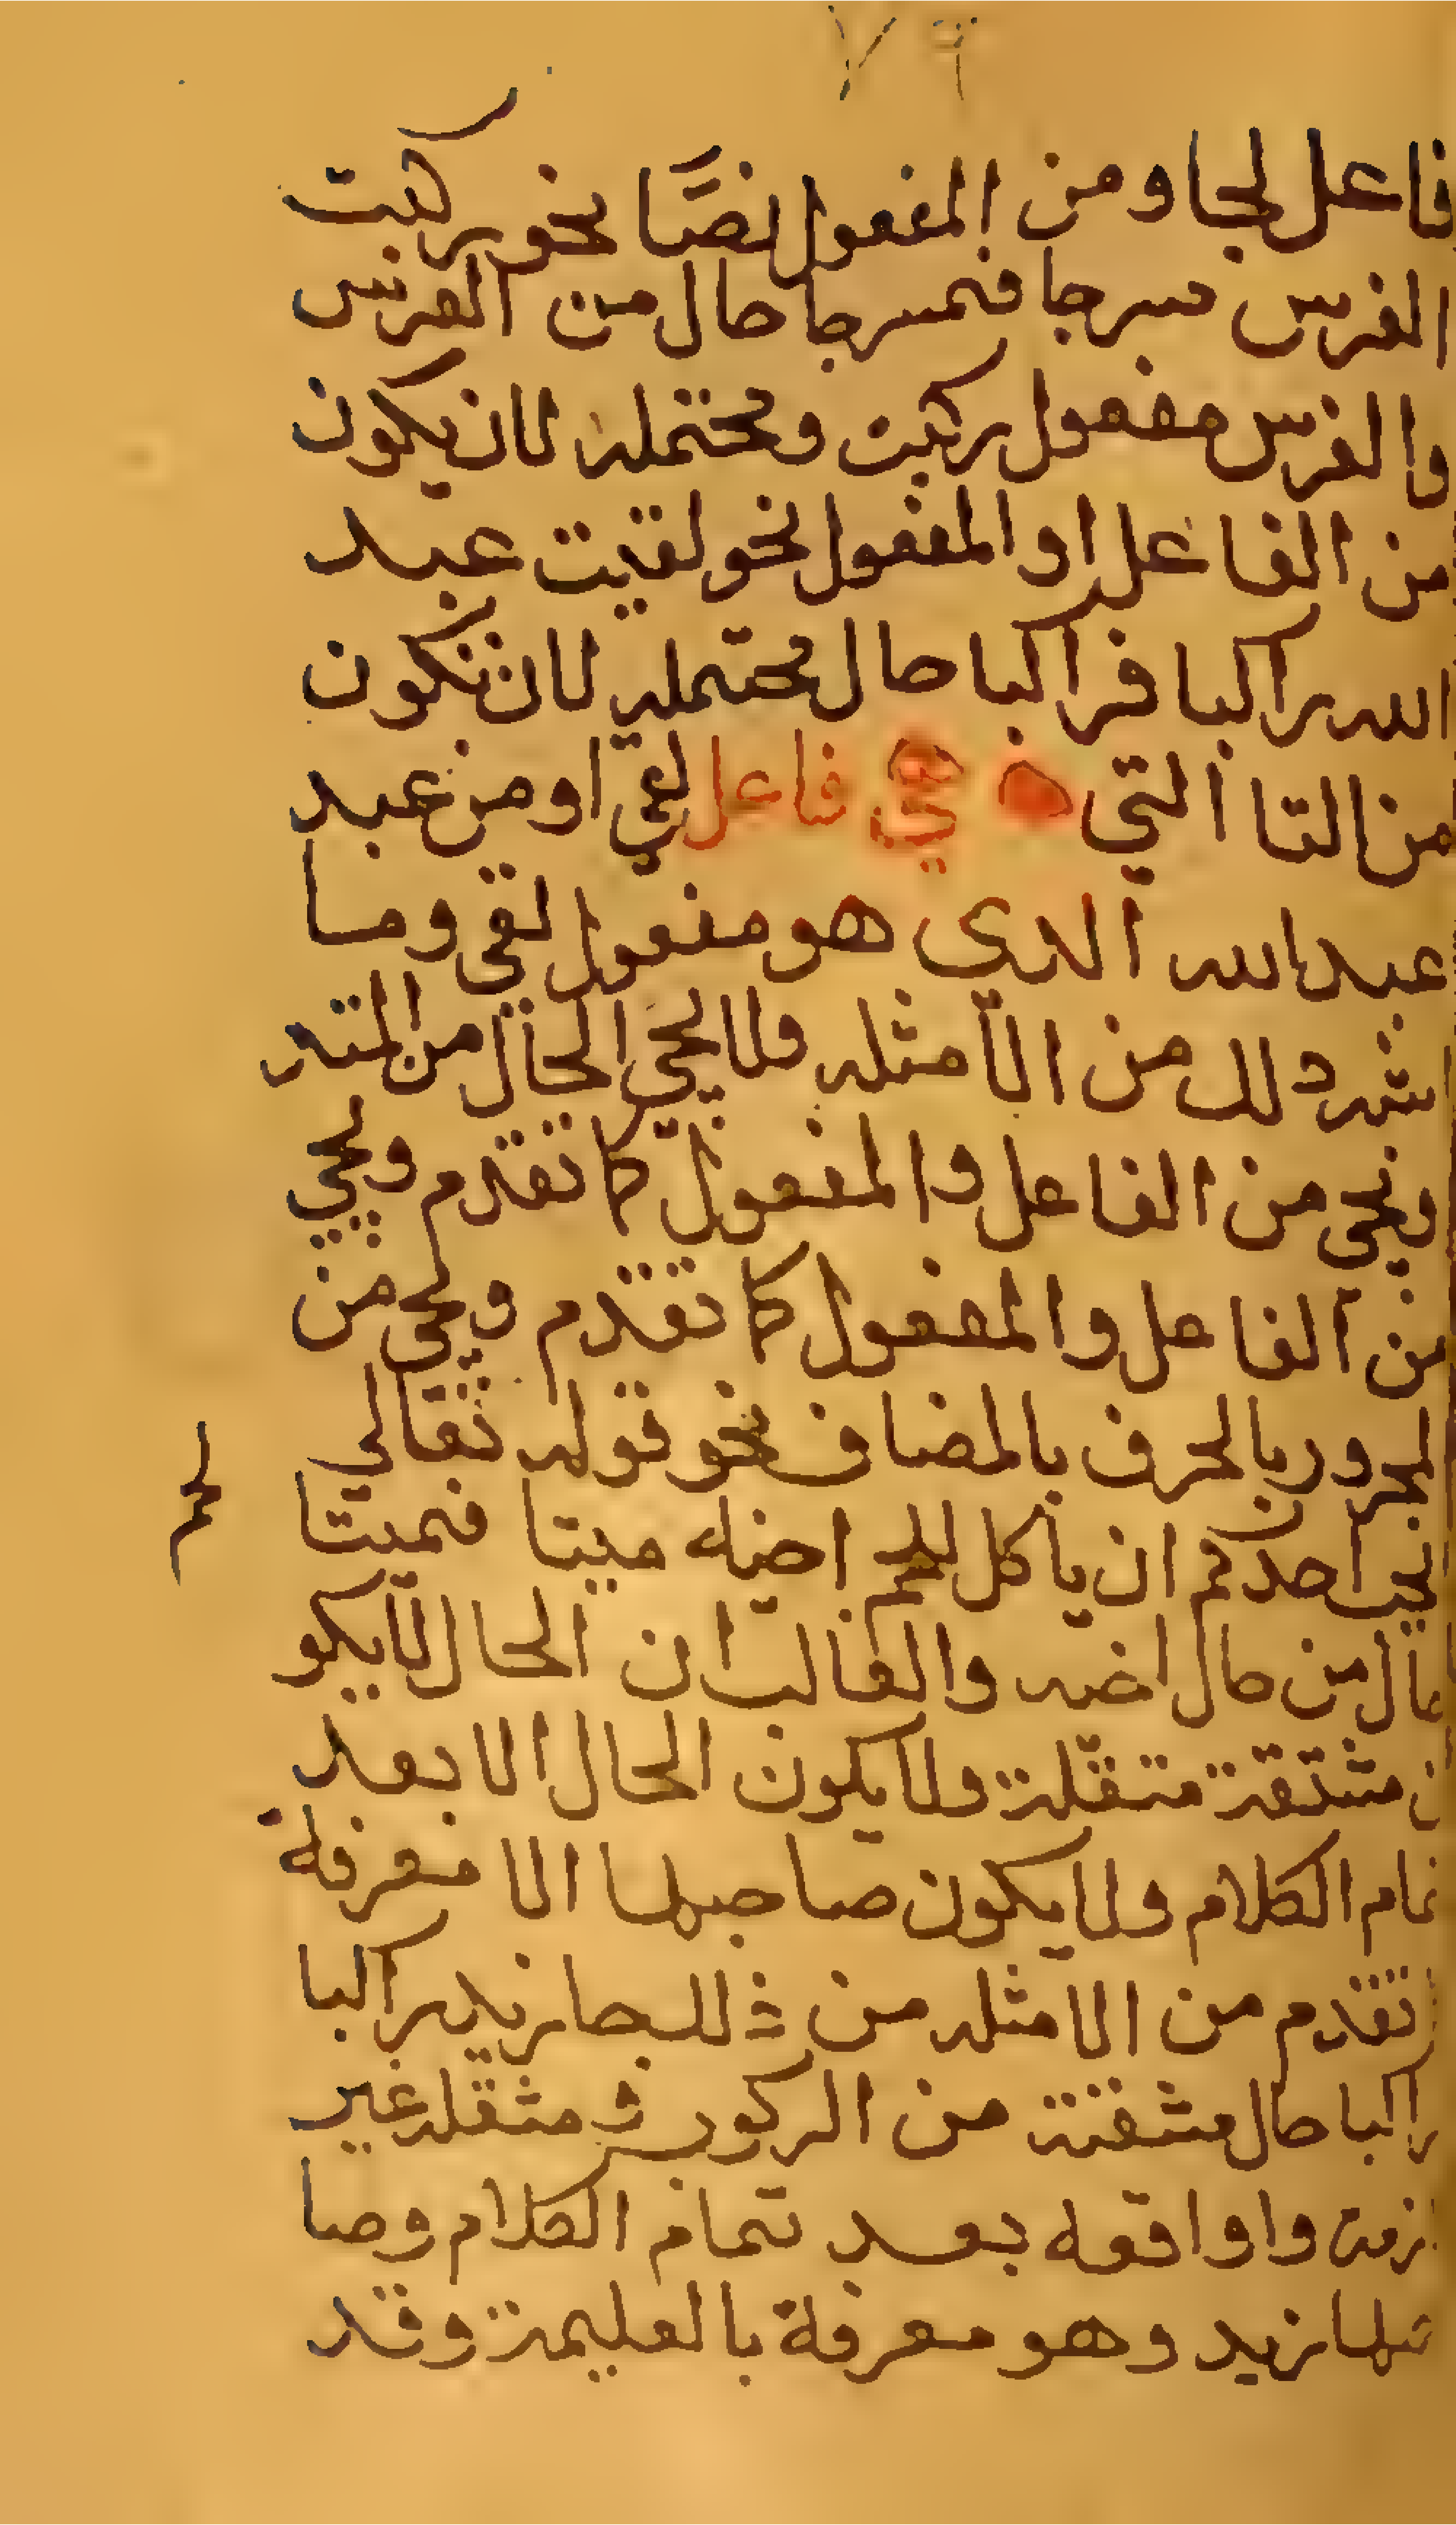 ٧٩
فاعل لجا ومن المفعول نصًا نحو ركبت
الفرس مسرجا فمسرجا حال من الفرس
والفرس مفعول ركبت ومحتمله لان يكون
من الفاعل او المفعول نحو لقيت عبد
الله راكبا فراكبا حال محتمله لان تكون
من التا التي هي فاعل لقي او من عبد
عبد الله الدى هو مفعول لقي وما
دلك من الأمثله فلا يجي الحال من المتد
ويجى من الفاعل والمفعول كما تقدم ويجي
من الفاعل والمفعول كما تقدم ويجي من
المجرور بالحرف بالمضاف نحو قوله تعالي
يحب احدكم ان ياكل لحم اخيه ميتا فميتا
حال من حال اخيه والغالب ان الحال لا يكو
ن مشتقة متقلة ولا يكون الحال الا بعد
تمام الكلام ولا يكون صاحبها الا معرفة
تقدم من الامثله من ذلك جا زيد راكبا
راكبا حال مشقتة من الركوب مثقله غير
لازمة واواقعه بعد تمام الكلام وصا
حبها زيد وهو معرفة بالعليمة وقد